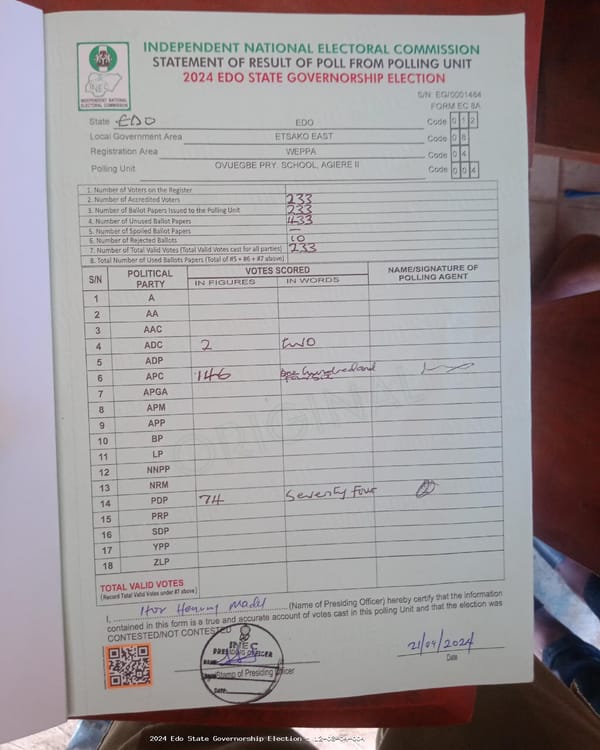 INDEPENDENT NATIONAL ELECTORAL COMMISSION
STATEMENT OF RESULT OF POLL FROM POLLING UNIT
2024 EDO STATE GOVERNORSHIP ELECTION
INEC
INDEPENDENT NATIONAL
ELECTORAL COMMISSION
S/N: EG/0001464
FORM EC 8A
State EDO EDO Code 0 1 2
Local Government Area ETSAKO EAST Code 0 8
Registration Area WEPPA Code 0 4
Polling Unit OVUEGBE PRY. SCHOOL, AGIERE II Code 0 0 4
1. Number of Voters on the Register
2. Number of Accredited Voters 233
3. Number of Ballot Papers Issued to the Polling Unit 233
4. Number of Unused Ballot Papers 433
5. Number of Spoiled Ballot Papers —
6. Number of Rejected Ballots 10
7. Number of Total Valid Votes (Total Valid Votes cast for all parties) 233
8. Total Number of Used Ballots Papers (Total of #5 + #6 + #7 above)
S/N POLITICAL PARTY VOTES SCORED NAME/SIGNATURE OF POLLING AGENT
IN FIGURES IN WORDS
1 A
2 AA
3 AAC
4 ADC 2 two
5 ADP
6 APC 146 One hundred and
7 APGA
8 APM
9 APP
10 BP
11 LP
12 NNPP
13 NRM
14 PDP 74 Seventy Four
15 PRP
16 SDP
17 YPP
18 ZLP
TOTAL VALID VOTES
(Record Total Valid Votes under #7 above)
I, (Name of Presiding Officer) hereby certify that the information
contained in this form is a true and accurate account of votes cast in this polling Unit and that the election was
CONTESTED/NOT CONTESTED
INEC
PRESIDING OFFICER
Stamp of Presiding Officer
DATE:
21/09/2024
Date
2024 Edo State Governorship Election - 12-08-04-004